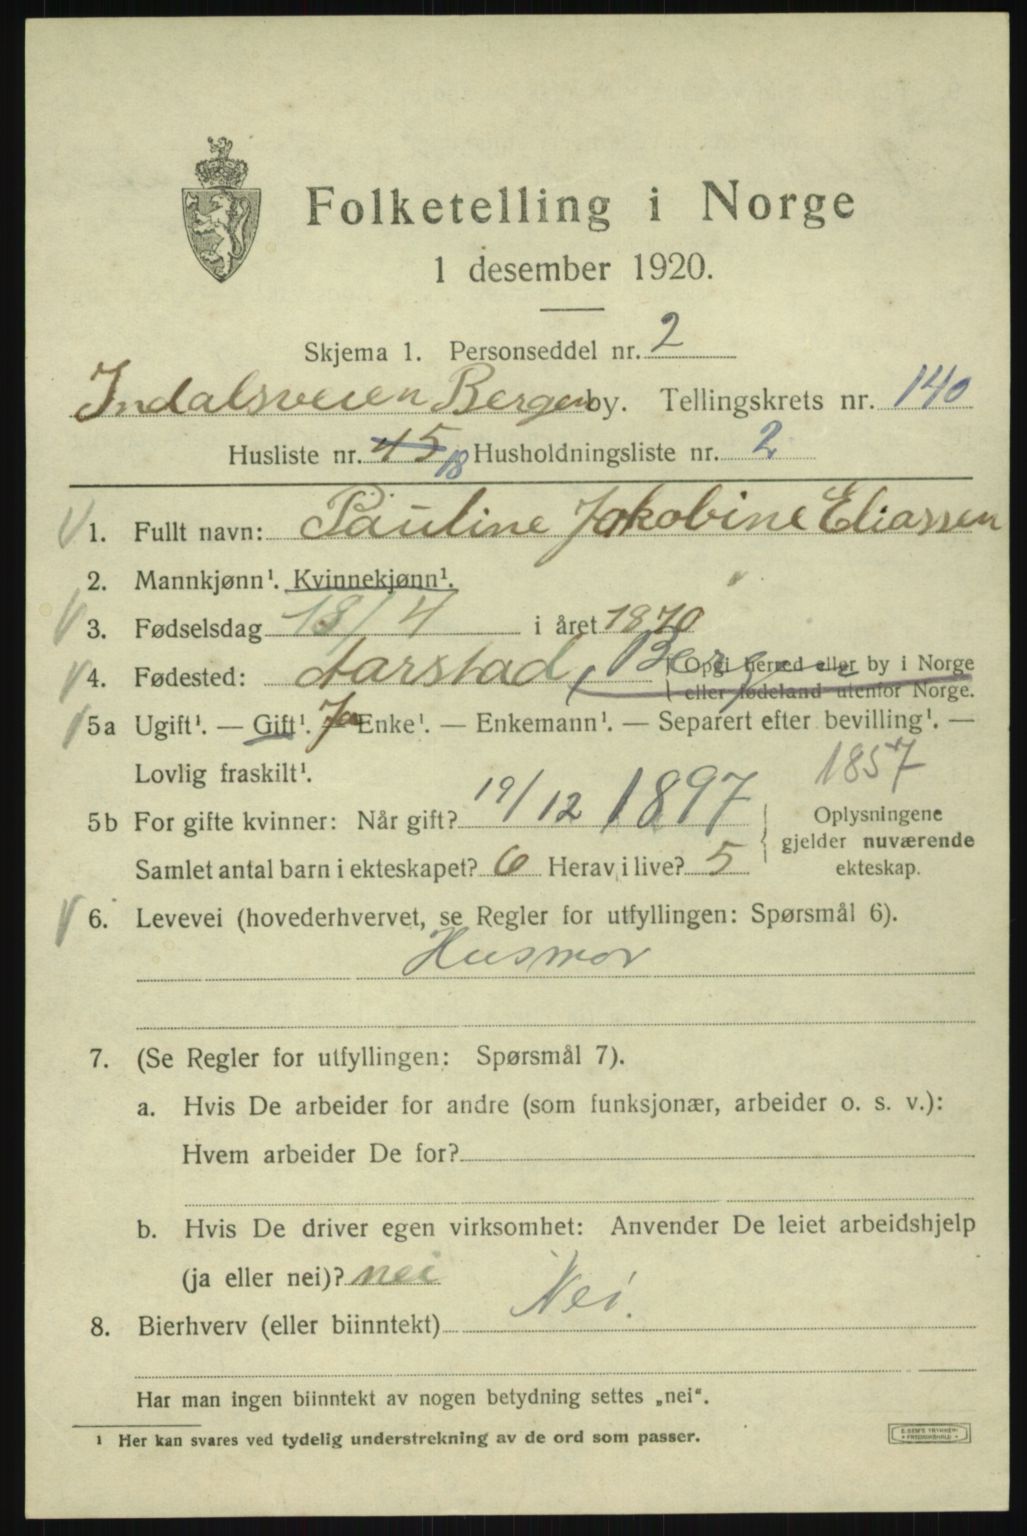 Folketelling i Norge
1 desember 1920.
Skjema 1. Personseddel nr. 2
Indalsveien Bergen by. Tellingskrets nr. 140
Husliste nr. 45 18 Husholdningsliste nr. 2
1. Fullt navn: Pauline Jakobine Eliassen
2. Mannkjønn¹. Kvinnekjønn¹.
3. Fødselsdag 18/4 i året 1870
4. Fødested: Aarstad, Bergen (Opgi herred eller by i Norge
eller fødeland utenfor Norge.
5a Ugift¹. — Gift¹. Ja Enke¹. — Enkemann¹. — Separert efter bevilling¹. —
Lovlig fraskilt¹. 1857
5b For gifte kvinner: Når gift? 19/12 1897 Oplysningene
gjelder nuværende
Samlet antal barn i ekteskapet? 6 Herav i live? 5 ekteskap.
6. Levevei (hovederhvervet, se Regler for utfyllingen: Spørsmål 6).
Husmor
7. (Se Regler for utfyllingen: Spørsmål 7).
a. Hvis De arbeider for andre (som funksjonær, arbeider o. s. v.):
Hvem arbeider De for?
b. Hvis De driver egen virksomhet: Anvender De leiet arbeidshjelp
(ja eller nei)? nei
8. Bierhverv (eller biinntekt) Nei.
Har man ingen biinntekt av nogen betydning settes „nei“.
¹ Her kan svares ved tydelig understrekning av de ord som passer.
E. SEM'S TRYKKERI
FREDRIKSHALD